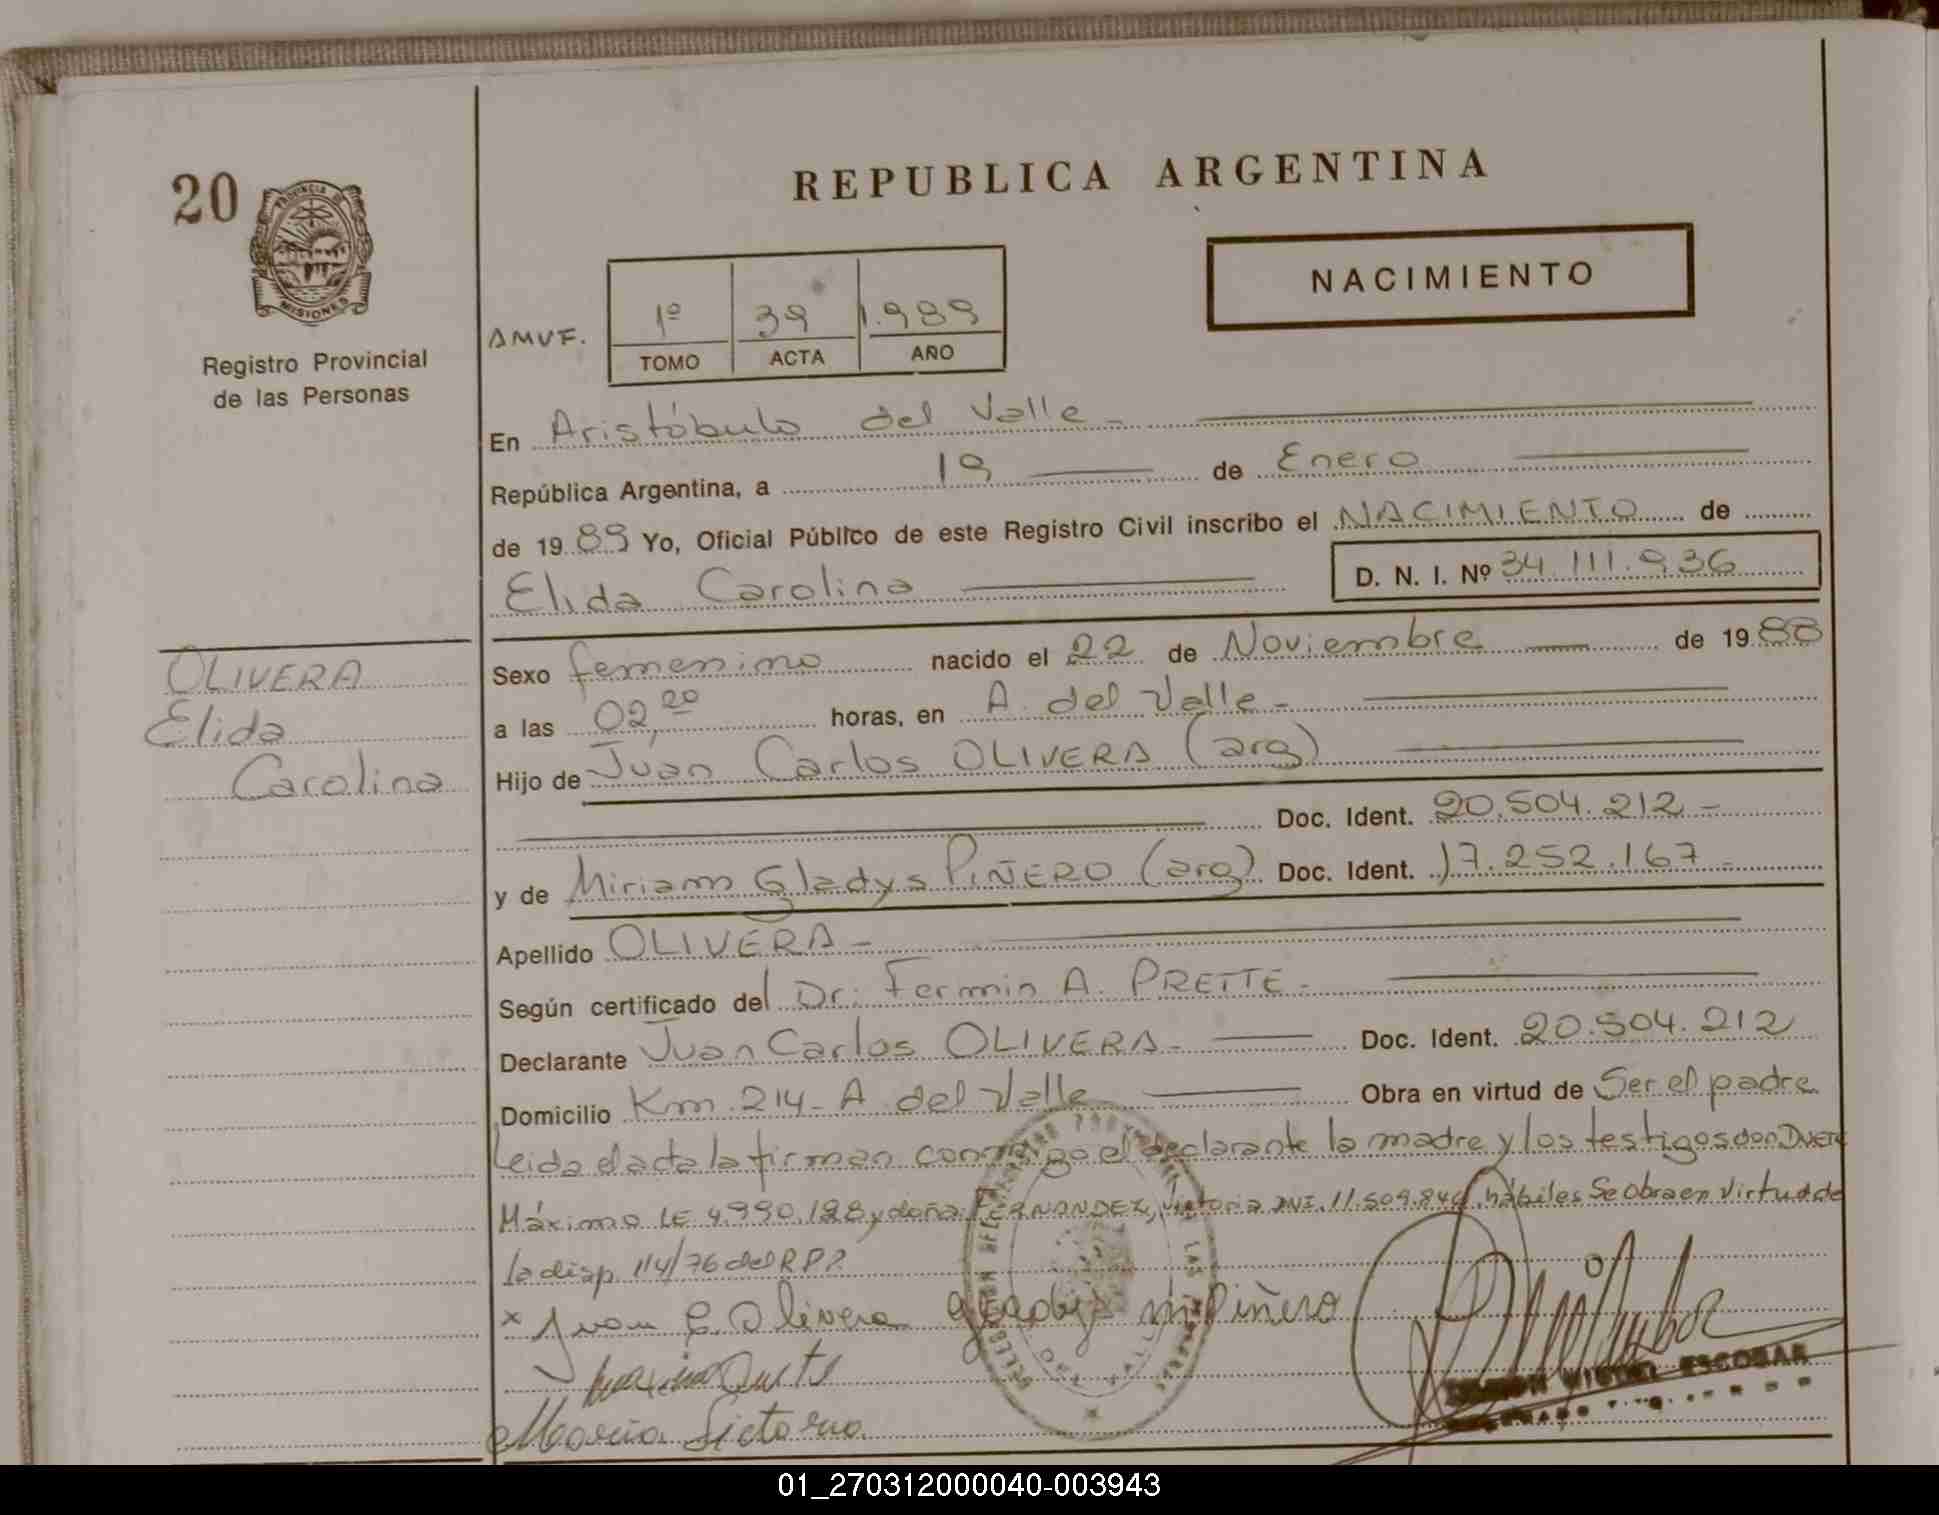 20
PROVINCIA DE
MISIONES
Registro Provincial
de las Personas
REPUBLICA ARGENTINA
NACIMIENTO
AMVF.
1º 39 1.989
TOMO ACTA AÑO
En Aristóbulo del Valle -
República Argentina, a 19 de Enero
de 1989 Yo, Oficial Público de este Registro Civil inscribo el NACIMIENTO de
Elida Carolina
D. N. I. Nº 34.111.936
OLIVERA
Elida
Carolina
Sexo femenino nacido el 22 de Noviembre de 1988
a las 02,20 horas, en A. del Valle -
Hijo de Juan Carlos OLIVERA (arg)
Doc. Ident. 20.504.212 -
y de Miriam Gladys PIÑERO (arg) Doc. Ident. 17.252.167 -
Apellido OLIVERA -
Según certificado del Dr. Fermin A. PRETTE -
Declarante Juan Carlos OLIVERA - Doc. Ident. 20.504.212
Domicilio Km 214 - A del Valle Obra en virtud de Ser el padre
Leida el acta la firman conmigo el declarante la madre y los testigos don
Máximo LE 4.990.128 y doña FERNANDEZ, Victoria DNI. 11.509.846, hábiles Se Obra en virtud de
la disp 114/76 del RPP.
x Juan C. Olivera Gladys M Piñero
Maria Victoria
ESCOBAR
01_270312000040-003943